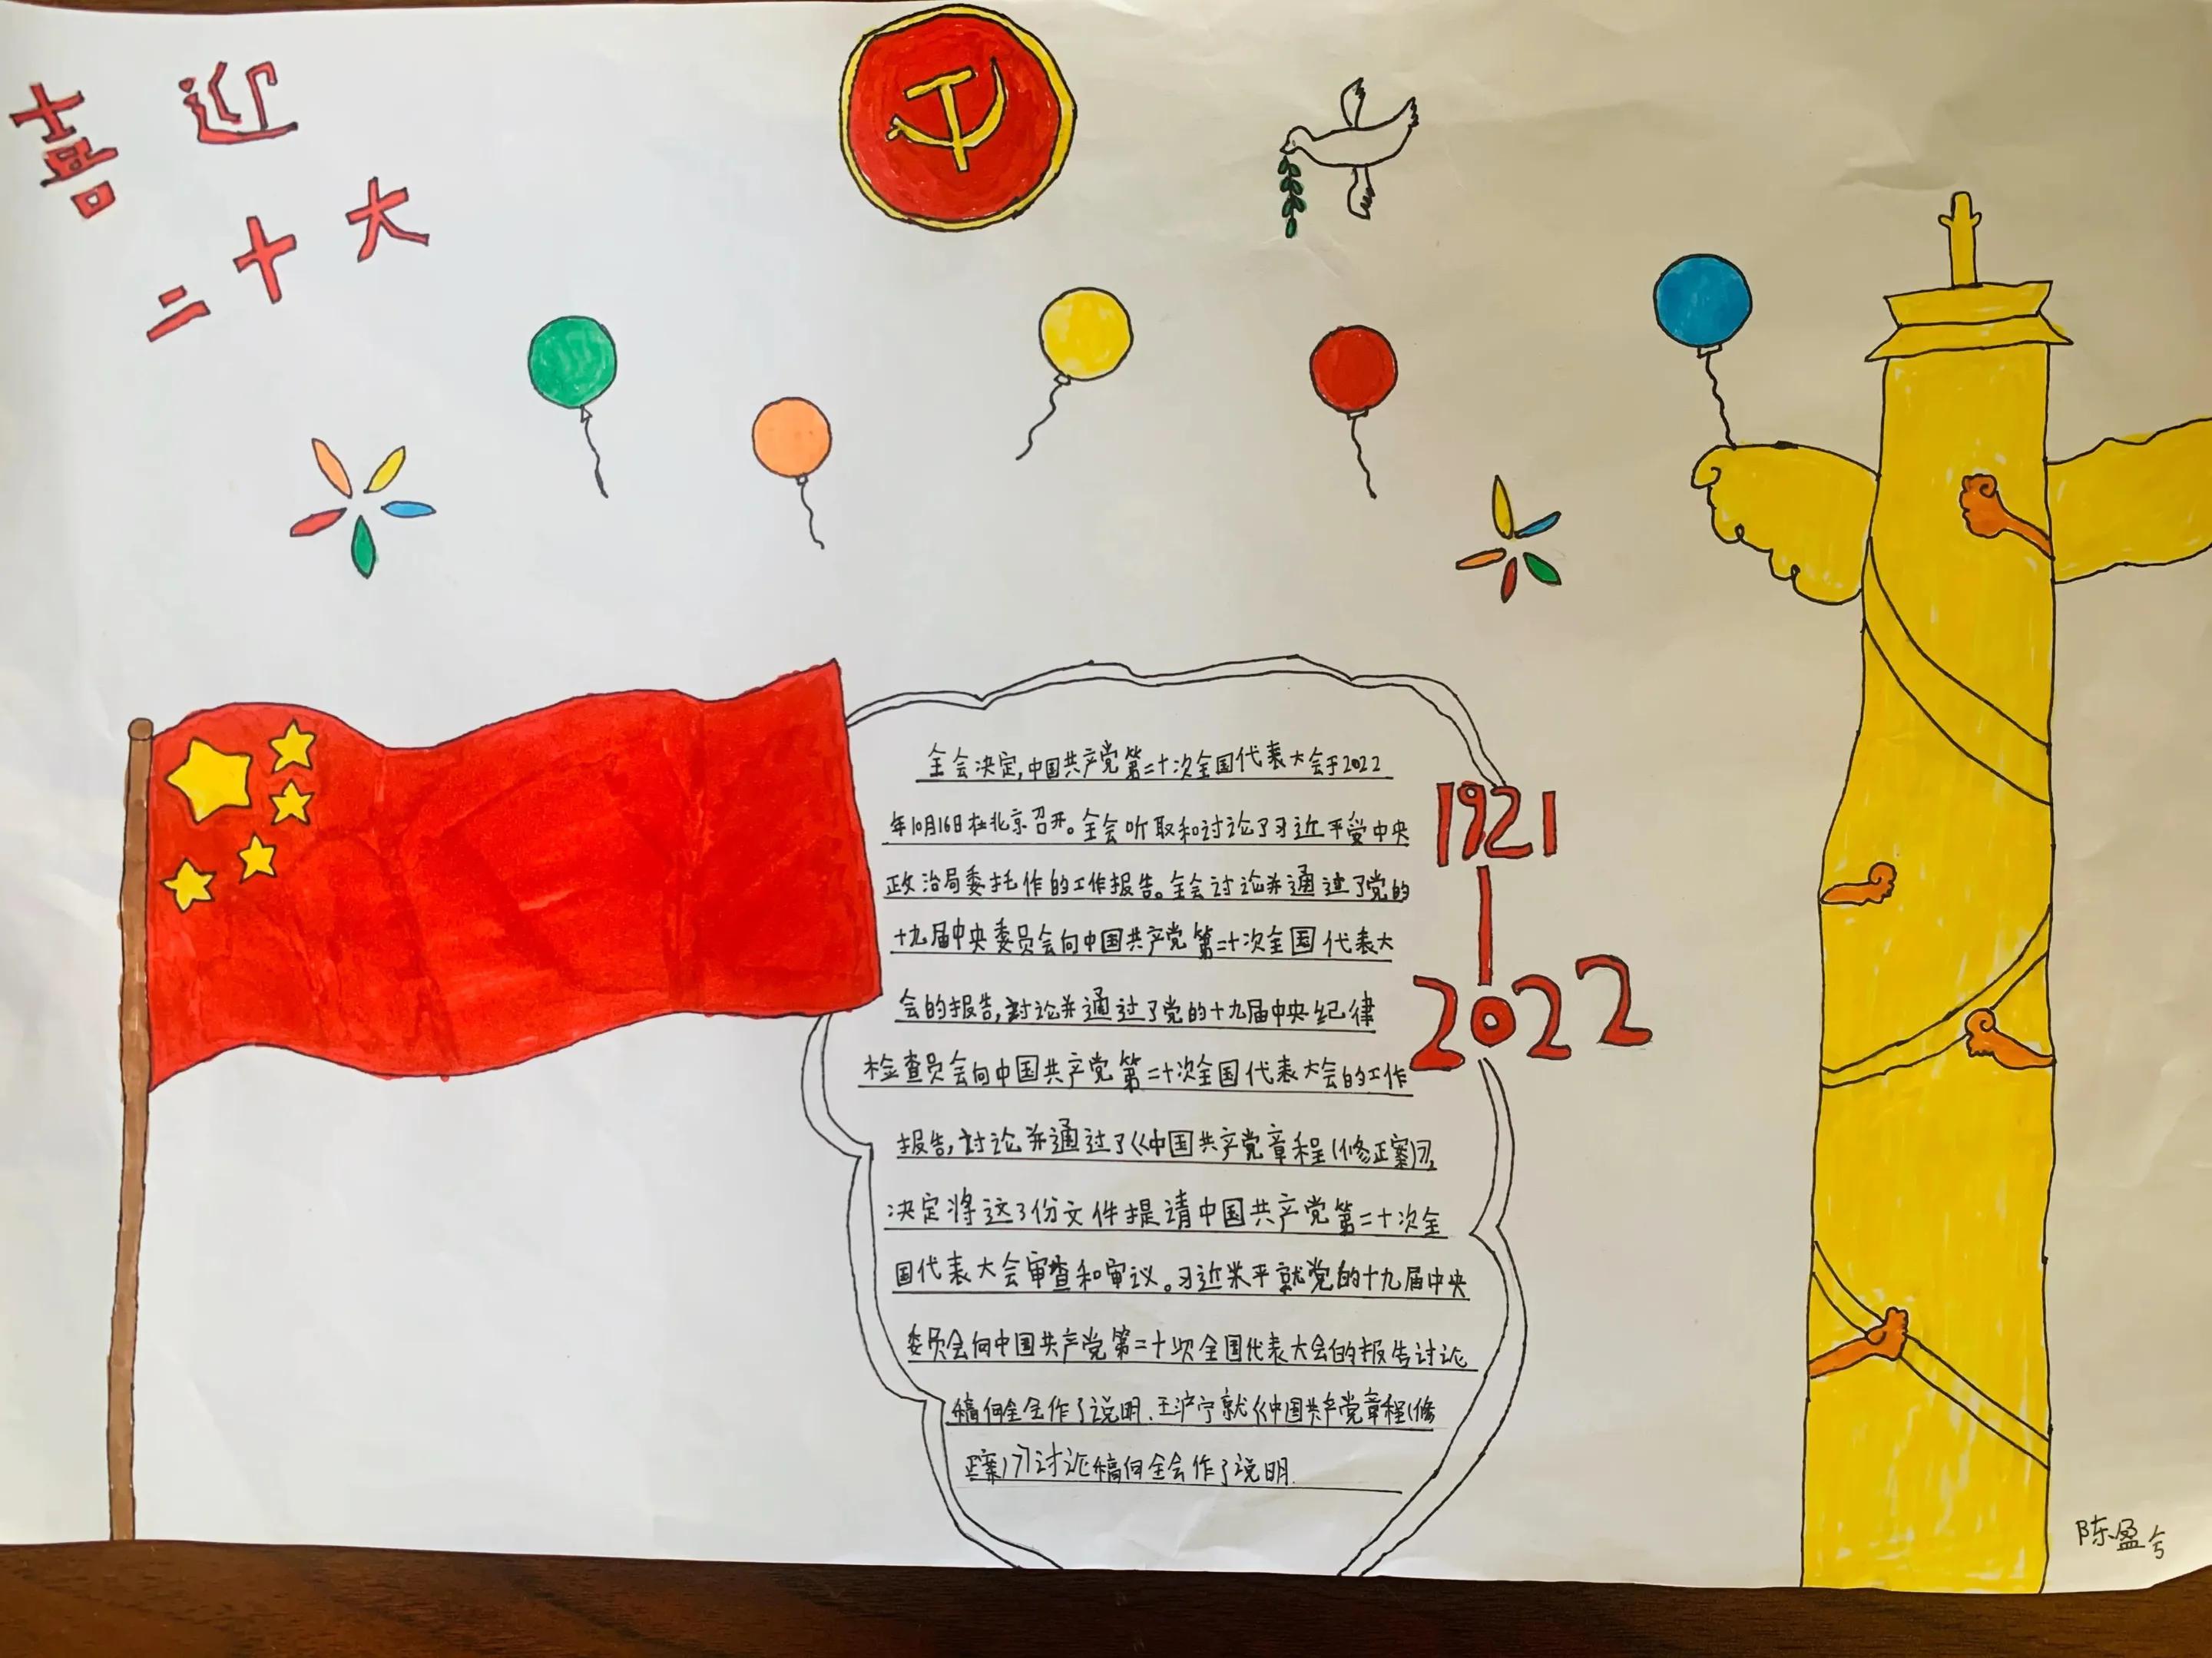 喜迎
二十大
全会决定,中国共产党第二十次全国代表大会于2022
年10月16日在北京召开。全会听取和讨论了习近平受中央
政治局委托作的工作报告。全会讨论并通过了党的
十九届中央委员会向中国共产党第二十次全国代表大
会的报告,讨论并通过了党的十九届中央纪律
检查员会向中国共产党第二十次全国代表大会的工作
报告,讨论并通过了《中国共产党章程(修正案)》,
决定将这3份文件提请中国共产党第二十次全
国代表大会审查和审议。习近平就党的十九届中央
委员会向中国共产党第二十次全国代表大会的报告讨论
稿向全会作了说明.王沪宁就《中国共产党章程(修
正案)》讨论稿向全会作了说明.
1921
2022
陈盈兮